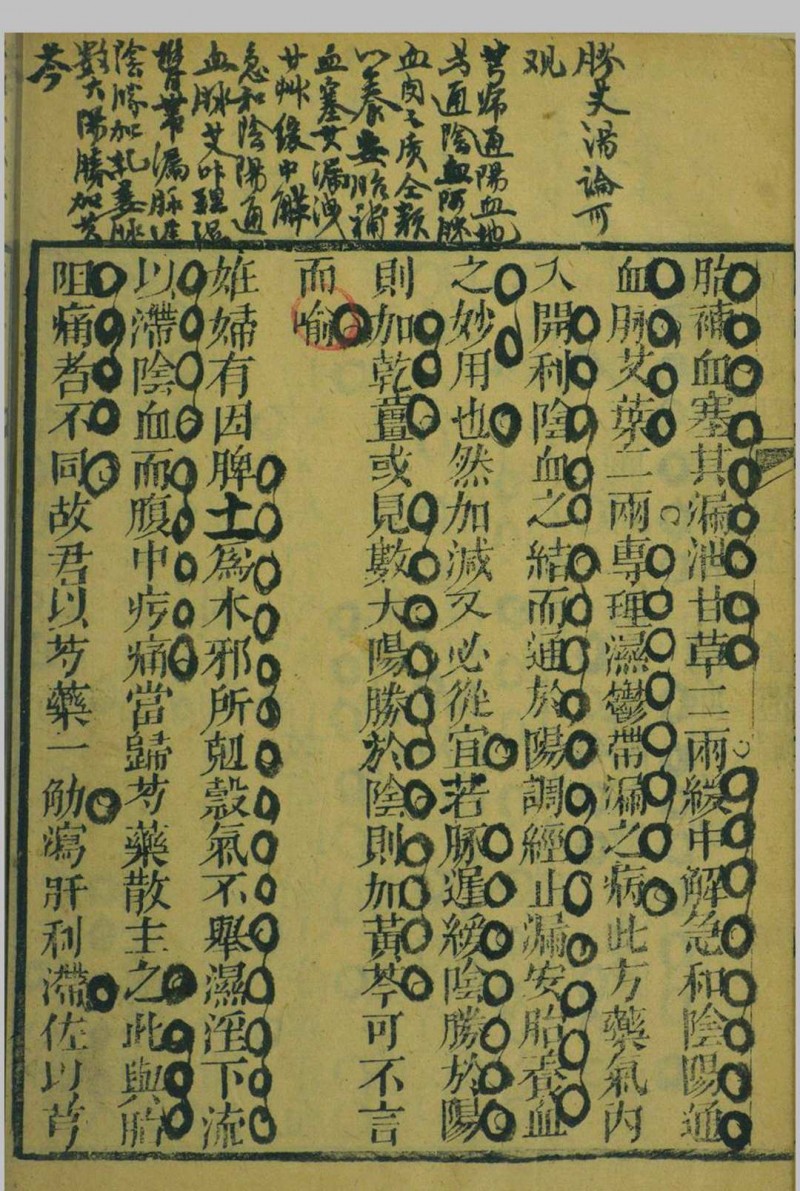 膠艾湯論可
观
芎归通陽血地
芍通陰血阿膠
血肉之质全赖
以养安胎補
血塞其漏洩
甘艸缓中解
急和陰陽通
血脉艾叶理湿
鬱带漏脉迟
陰勝加乾姜脉
数大陽勝加黄
芩
胎補血塞其漏泄甘草二兩緩中解急和陰陽通
血脉艾葉二兩專理濕鬱帶漏之病此方藥氣內
入開利陰血之結而通於陽調經止漏安胎養血
之妙用也然加減又必從宜若脉遲緩陰勝於陽
則加乾薑或見數大陽勝於陰則加黃芩可不言
而喻
姙婦有因脾土爲木邪所尅穀氣不舉濕淫下流
以滯陰血而腹中㽲痛當歸芍藥散主之此與胎
阻痛者不同故君以芍藥一觔瀉肝利滯佐以芎